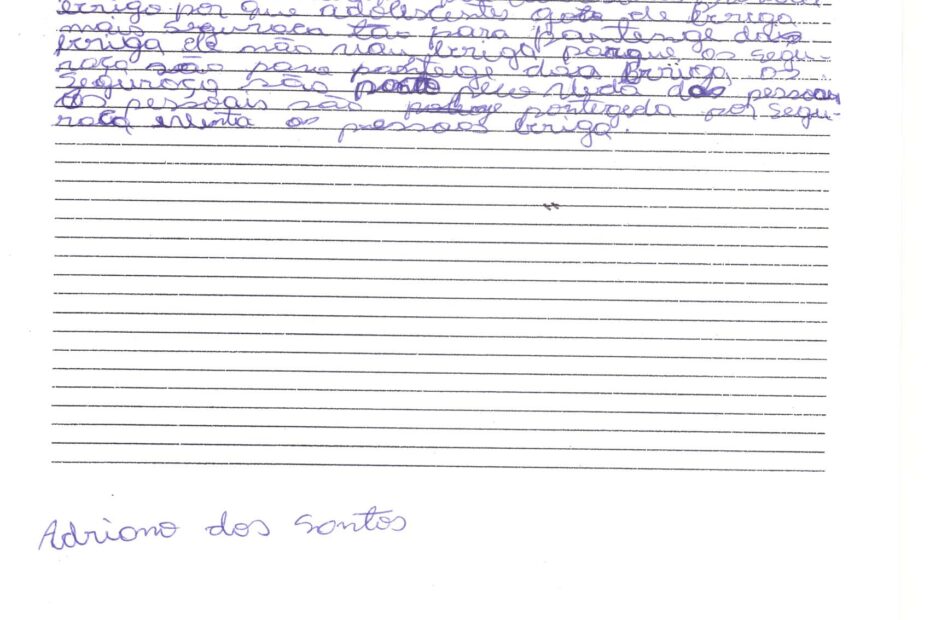 brigo por que adolescentes gota de briga
mais seguraca tão para pantenge dos
briga ele não vau briga porque os segu-
raça são para pantege dos briga os
seguraça são pelo vida dos pessoas
as pessoais são portegeda por segu-
raca evinta os pessoas briga.
Adriano dos Santos